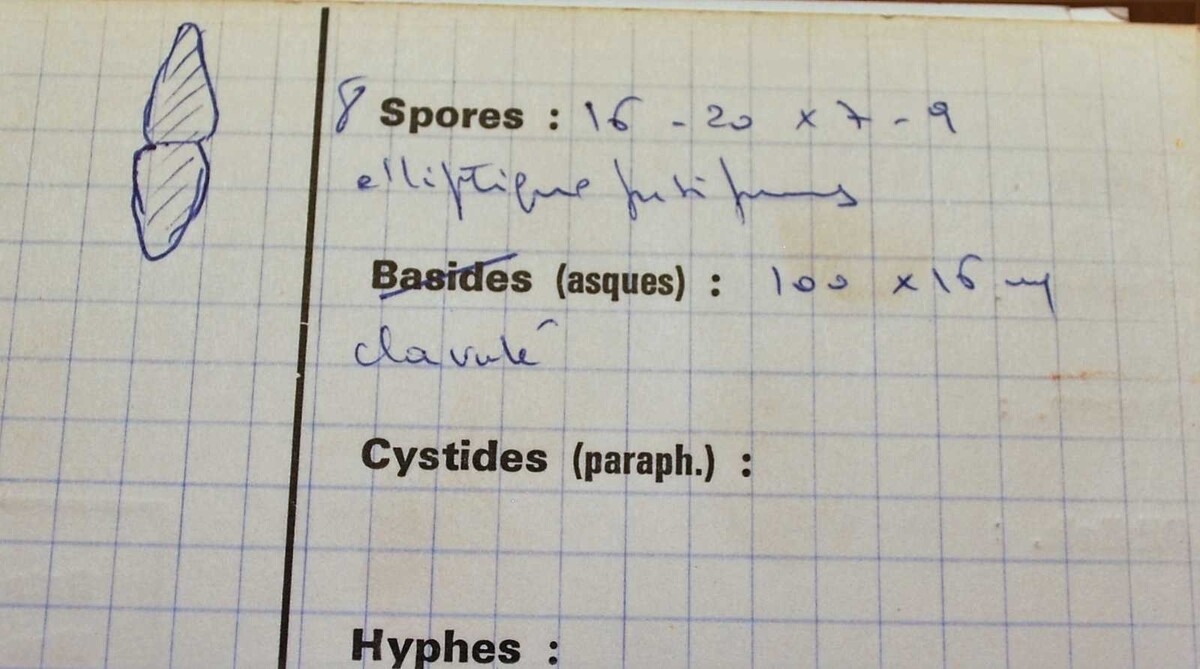 8 Spores : 16 - 20 x 7 - 9
elliptique fusiforme
Basides (asques) : 100 x 16
clavulé
Cystides (paraph.) :
Hyphes :